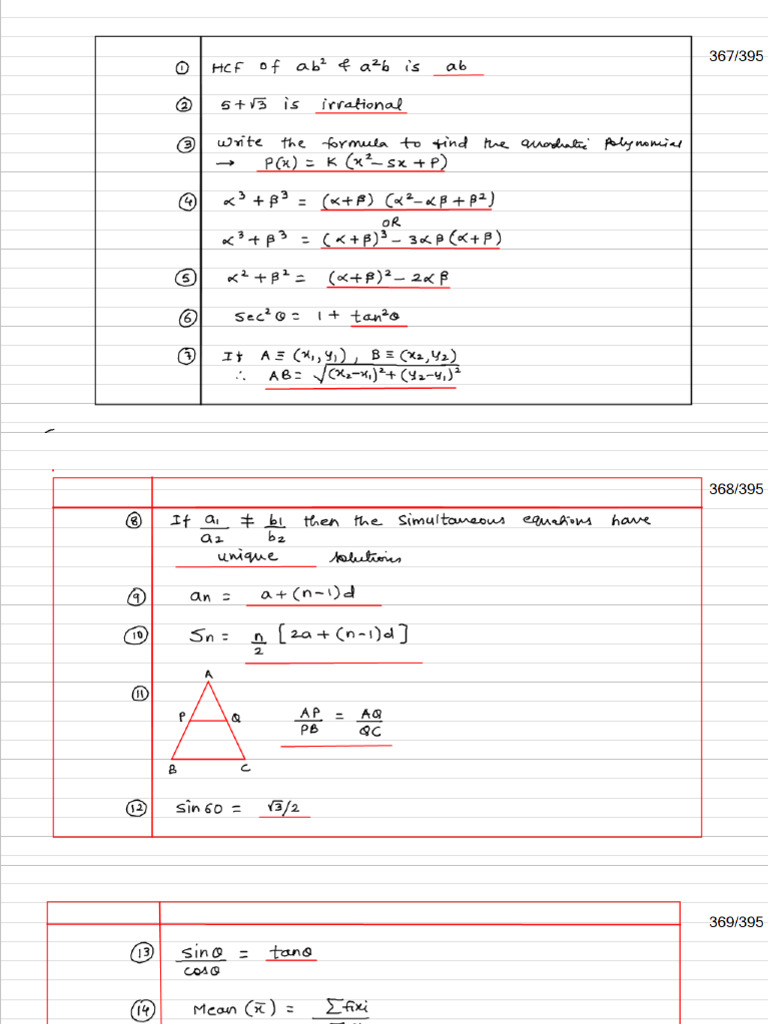 367/395
① HCF of ab² & a²b is ab
② 5+√3 is irrational
③ Write the formula to find the quadratic polynomial
→ P(x) = K (x² – Sx + P)
④ α³ + β³ = (α+β) (α² – αβ + β²)
OR
α³ + β³ = (α+β)³ – 3αβ (α+β)
⑤ α² + β² = (α+β)² – 2αβ
⑥ sec²θ = 1 + tan²θ
⑦ If A ≡ (x₁, y₁), B ≡ (x₂, y₂)
∴ AB = √(x₂–x₁)² + (y₂–y₁)²
368/395
⑧ If a₁/a₂ ≠ b₁/b₂ then the simultaneous equations have
unique solutions
⑨ an = a + (n–1)d
⑩ Sn = n/2 [2a + (n–1)d]
A
⑪ P Q AP/PB = AQ/QC
B C
⑫ sin60 = √3/2
369/395
⑬ sinθ/cosθ = tanθ
⑭ Mean (x̄) = Σfixi